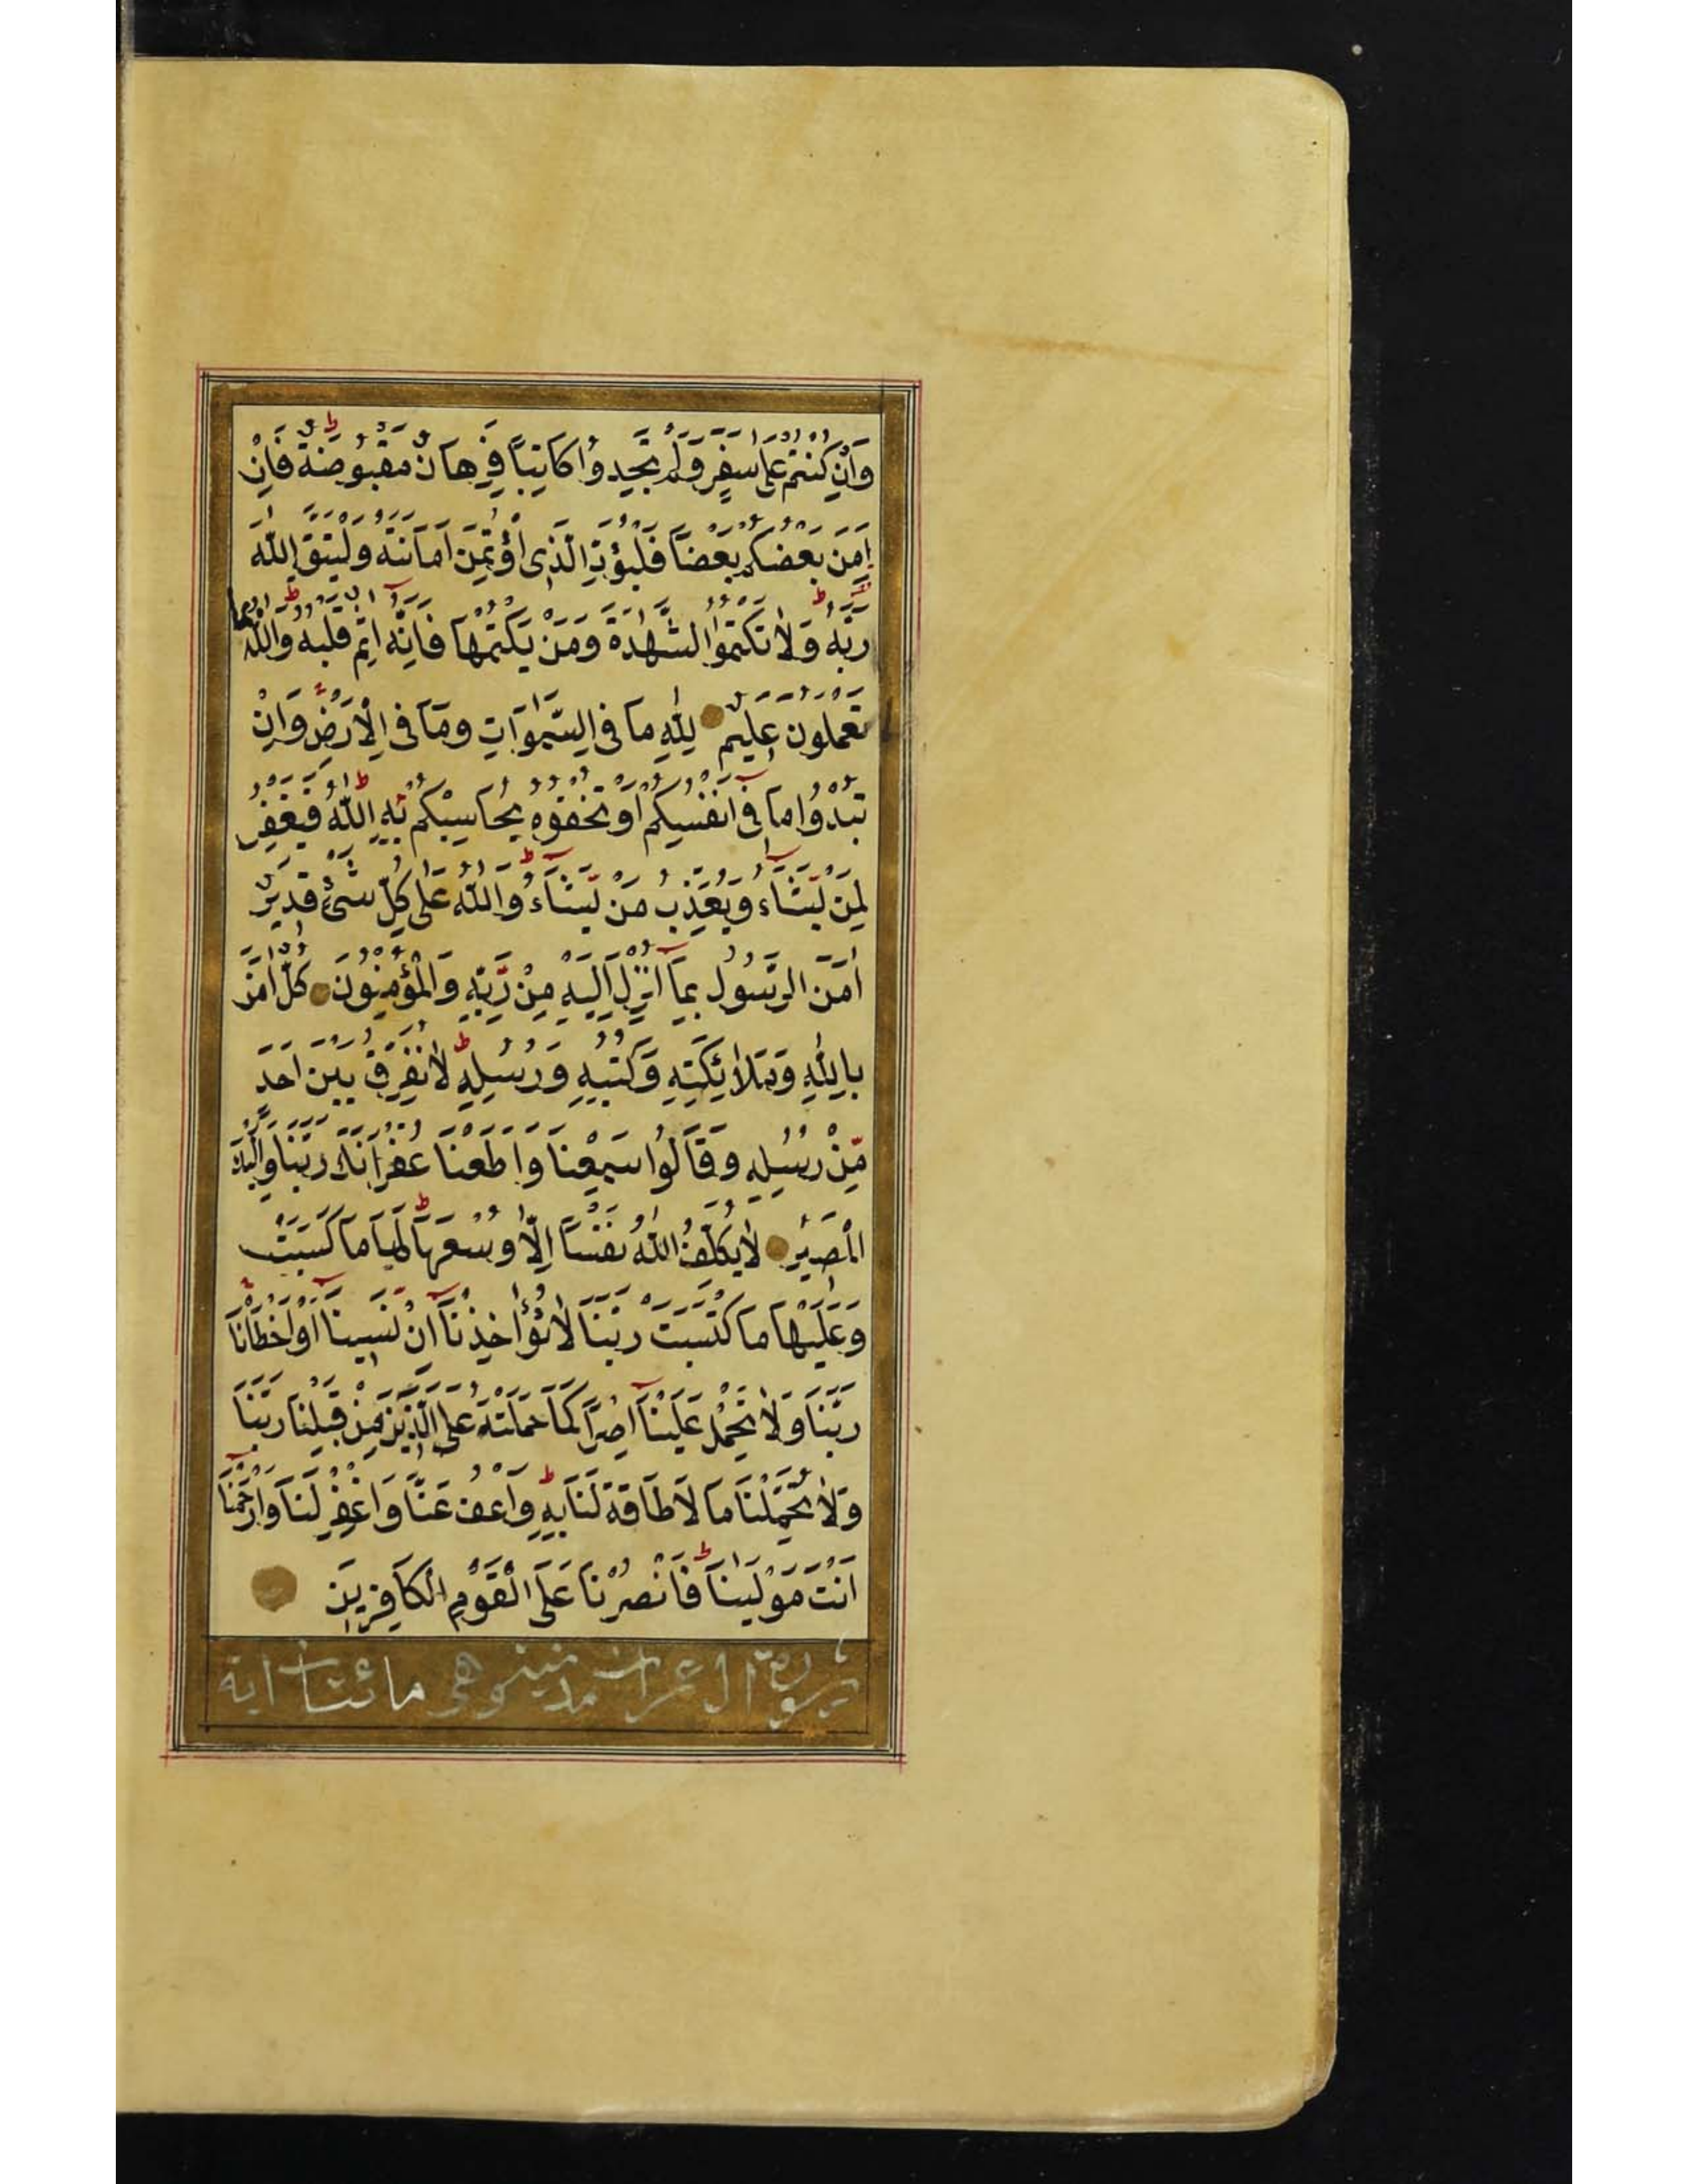 وَاِنْ كُنْتُمْ عَلٰى سَفَرٍ وَلَمْ تَجِدُوا كَاتِبًا فَرِهَانٌ مَقْبُوضَةٌ فَاِنْ
اَمِنَ بَعْضُكُمْ بَعْضًا فَلْيُؤَدِّ الَّذِى اؤْتُمِنَ اَمَانَتَهُ وَلْيَتَّقِ اللّٰهَ
رَبَّهُ وَلَا تَكْتُمُوا الشَّهٰدَةَ وَمَنْ يَكْتُمْهَا فَاِنَّهُ اٰثِمٌ قَلْبُهُ وَاللّٰهُ بِمَا
تَعْمَلُونَ عَلِيمٌ لِلّٰهِ مَا فِى السَّمٰوَاتِ وَمَا فِى الْاَرْضِ وَاِنْ
تُبْدُوا مَا فِى اَنْفُسِكُمْ اَوْ تُخْفُوهُ يُحَاسِبْكُمْ بِهِ اللّٰهُ فَيَغْفِرُ
لِمَنْ يَّشَاءُ وَيُعَذِّبُ مَنْ يَّشَاءُ وَاللّٰهُ عَلٰى كُلِّ شَىْءٍ قَدِيرٌ
اٰمَنَ الرَّسُولُ بِمَا اُنْزِلَ اِلَيْهِ مِنْ رَّبِّهِ وَالْمُؤْمِنُونَ كُلٌّ اٰمَنَ
بِاللّٰهِ وَمَلَائِكَتِهِ وَكُتُبِهِ وَرُسُلِهِ لَا نُفَرِّقُ بَيْنَ اَحَدٍ
مِّنْ رُسُلِهِ وَقَالُوا سَمِعْنَا وَاَطَعْنَا غُفْرَانَكَ رَبَّنَا وَاِلَيْكَ
الْمَصِيرُ لَا يُكَلِّفُ اللّٰهُ نَفْسًا اِلَّا وُسْعَهَا لَهَا مَا كَسَبَتْ
وَعَلَيْهَا مَا كْتَسَبَتْ رَبَّنَا لَا تُؤَاخِذْنَا اِنْ نَسِينَا اَوْ اَخْطَأْنَا
رَبَّنَا وَلَا تَحْمِلْ عَلَيْنَا اِصْرًا كَمَا حَمَلْتَهُ عَلَى الَّذِينَ مِنْ قَبْلِنَا رَبَّنَا
وَلَا تُحَمِّلْنَا مَا لَا طَاقَةَ لَنَا بِهِ وَاعْفُ عَنَّا وَاغْفِرْ لَنَا وَارْحَمْنَا
اَنْتَ مَوْلٰينَا فَانْصُرْنَا عَلَى الْقَوْمِ الْكَافِرِينَ
سورة ال عمران مدنية وهى مائتان اية